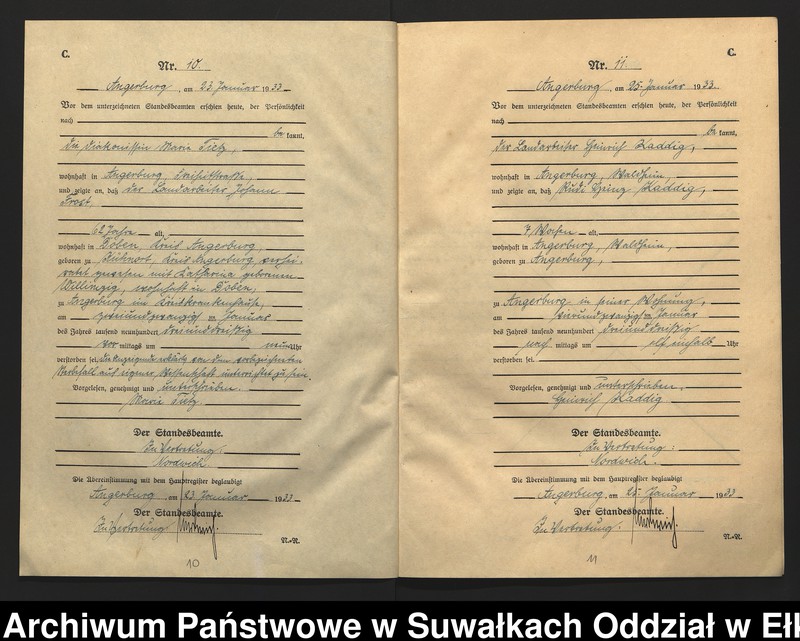 C.
Nr. 10.
Angerburg, am 23. Januar 1933.
Vor dem unterzeichneten Standesbeamten erschien heute, der Persönlichkeit
nach
bekannt,
die Diakonissin Marie Tietz,
wohnhaft in Angerburg,
und zeigte an, daß der Landarbeiter Johann
Frost,
62 Jahre alt,
wohnhaft in Doben, Kreis Angerburg,
geboren zu Kreis Angerburg, verhei-
ratet gewesen mit Katharina geborenen
wohnhaft in Doben,
zu Angerburg im Kreiskrankenhause,
am zweiundzwanzigsten Januar
des Jahres tausend neunhundert dreiunddreißig
vor mittags um neun Uhr
verstorben sei. Die Anzeigende erklärte von dem vorbezeichneten
Sterbefall aus eigener Wissenschaft unterrichtet zu sein.
Vorgelesen, genehmigt und unterschrieben.
Marie Tietz.
Der Standesbeamte.
In Vertretung.
Die Übereinstimmung mit dem Hauptregister beglaubigt
Angerburg, am 23. Januar 1933
Der Standesbeamte.
In Vertretung
N.-N.
10
C.
Nr. 11.
Angerburg, am 25. Januar 1933.
Vor dem unterzeichneten Standesbeamten erschien heute, der Persönlichkeit
nach
bekannt,
der Landarbeiter Heinrich Kaddig,
wohnhaft in Angerburg, Waldheim,
und zeigte an, daß Rudi Heinz Kaddig,
7 Wochen alt,
wohnhaft in Angerburg, Waldheim,
geboren zu Angerburg,
zu Angerburg in seiner Wohnung,
am Januar
des Jahres tausend neunhundert dreiunddreißig
nach mittags um elf einhalb Uhr
verstorben sei.
Vorgelesen, genehmigt und unterschrieben.
Heinrich Kaddig
Der Standesbeamte.
In Vertretung:
Die Übereinstimmung mit dem Hauptregister beglaubigt
Angerburg, am 25. Januar 1933
Der Standesbeamte.
In Vertretung.
N.-N.
11
Archiwum Państwowe w Suwałkach Oddział w Eł